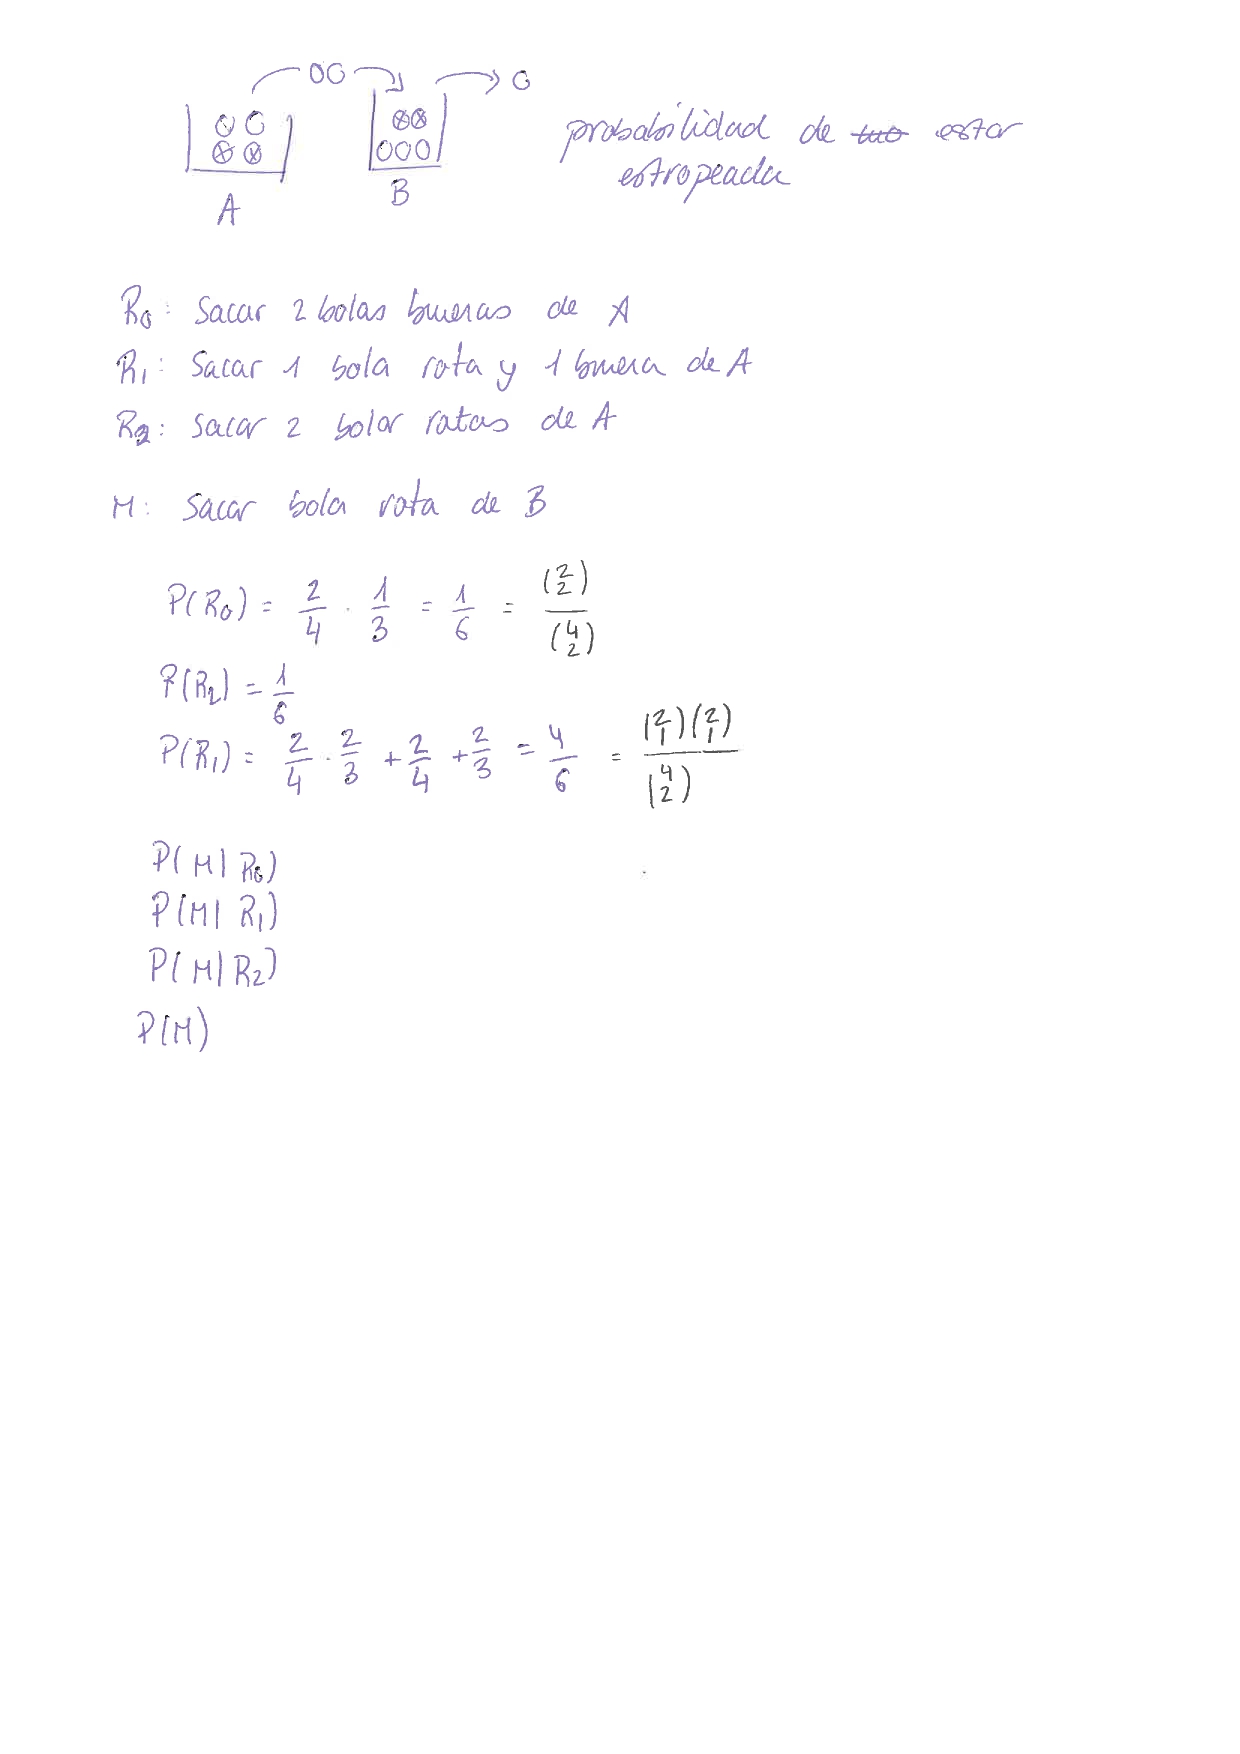 A
B
probabilidad de estar
estropeada
R₀: Sacar 2 bolas buenas de A
R₁: Sacar 1 bola rota y 1 buena de A
R₂: Sacar 2 bolas rotas de A
M: Sacar bola rota de B
P(R₀) = 2/4 · 1/3 = 1/6 = (2 2)/(4 2)
P(R₂) = 1/6
P(R₁) = 2/4 · 2/3 + 2/4 + 2/3 = 4/6 = (2 1)(2 1)/(4 2)
P(M|R₀)
P(M|R₁)
P(M|R₂)
P(M)